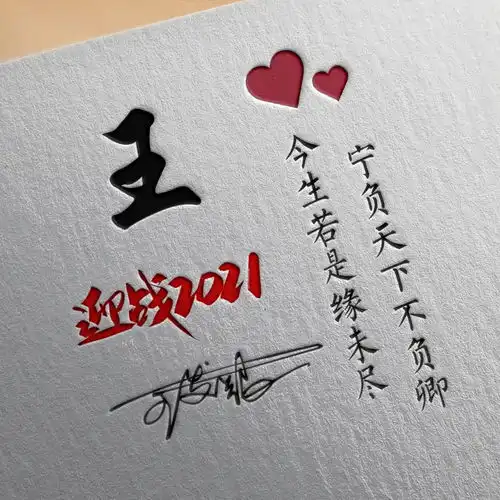 王
迎战2021
今生若是缘未尽
宁负天下不负卿